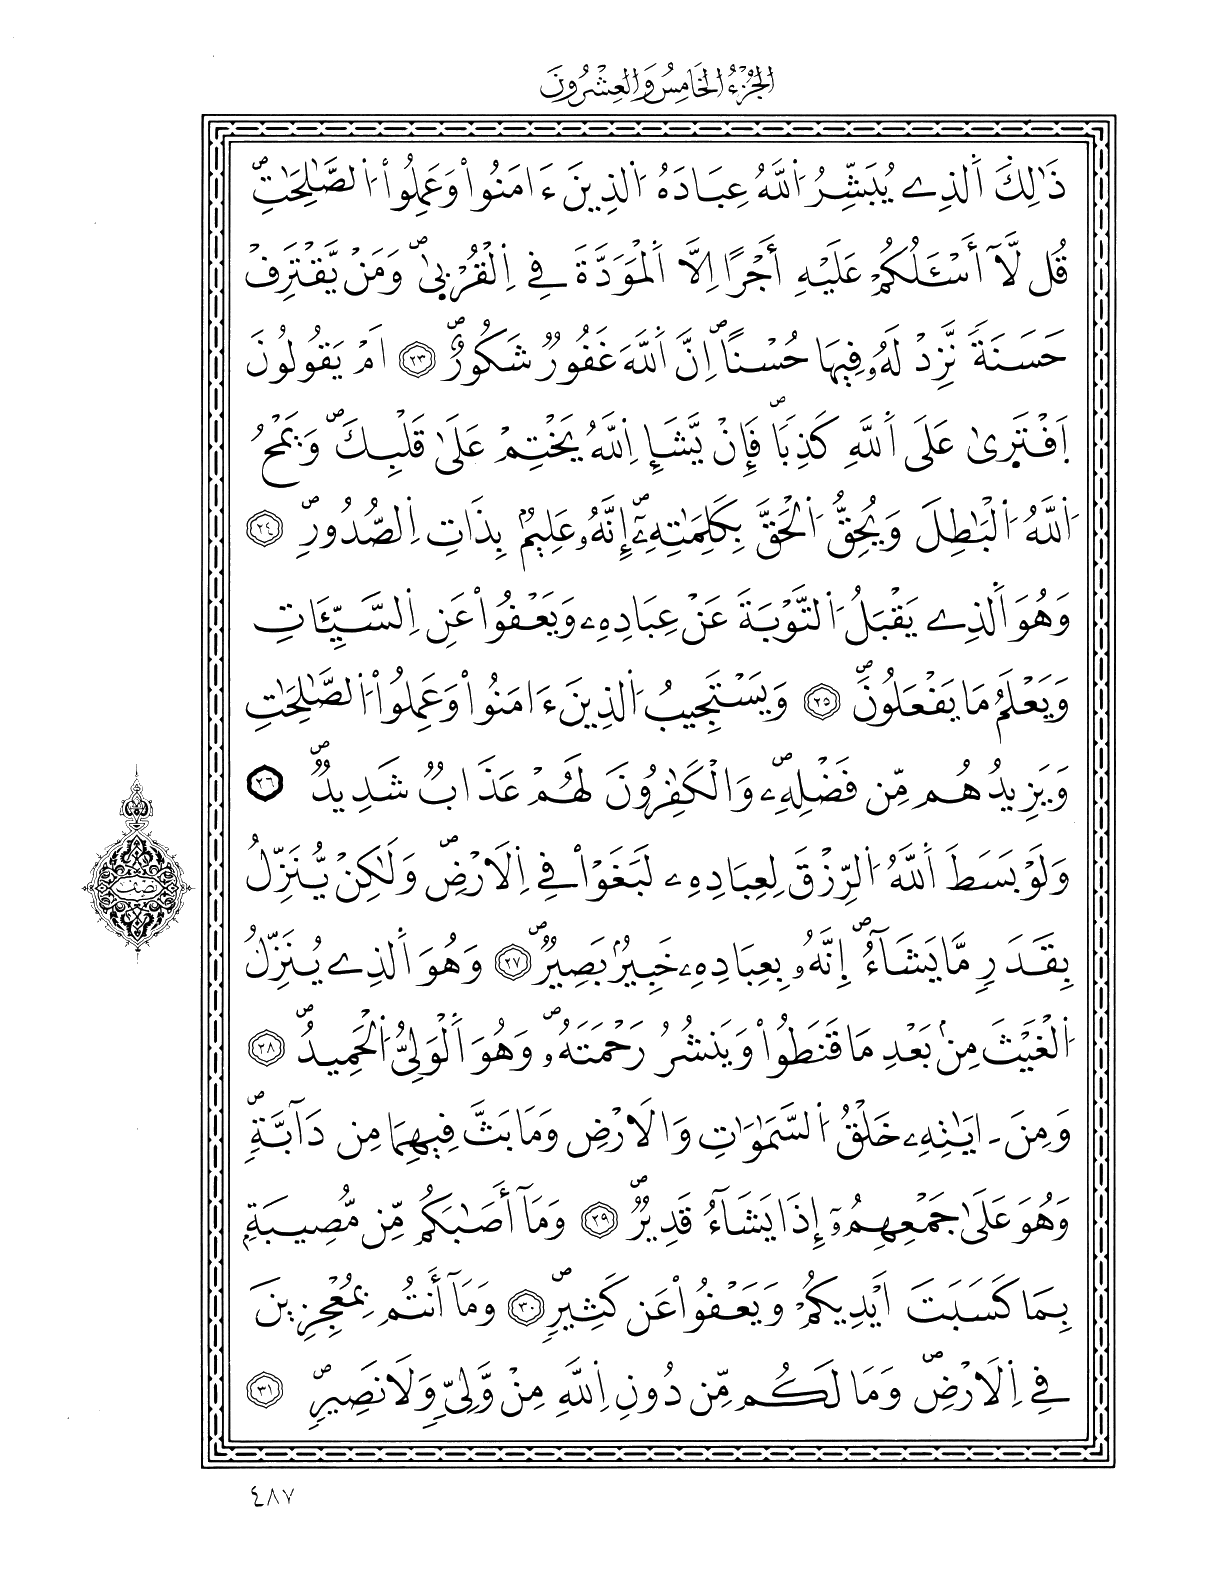 الجزء الخامس والعشرون
ذَٰلِكَ اَ۬لذِے يُبَشِّرُ اُ۬للَّهُ عِبَادَهُ اُ۬لذِينَ ءَامَنُواْ وَعَمِلُواْ اُ۬لصَّٰلِحَٰتِۖ
قُل لَّآ أَسْـَٔلُكُمْ عَلَيْهِ أَجْرًا اِلَّا اَ۬لْمَوَدَّةَ فِے اِ۬لْقُرْب۪ىٰۖ وَمَنْ يَّقْتَرِفْ
حَسَنَةٗ نَّزِدْ لَهُۥ فِيهَا حُسْناًۖ اِنَّ اَ۬للَّهَ غَفُورٞ شَكُورٌۖ ٢٣ اَمْ يَقُولُونَ
اَ۪فْتَر۪ىٰ عَلَى اَ۬للَّهِ كَذِباٗۖ فَإِنْ يَّشَإِ اِ۬للَّهُ يَخْتِمْ عَلَىٰ قَلْبِكَۖ وَيَمْحُ
اُ۬للَّهُ اُ۬لْبَٰطِلَ وَيُحِقُّ اُ۬لْحَقَّ بِكَلِمَٰتِهِۦٓۖ إِنَّهُۥ عَلِيمُۢ بِذَاتِ اِ۬لصُّدُورِۖ ٢٤
وَهُوَ اَ۬لذِے يَقْبَلُ اُ۬لتَّوْبَةَ عَنْ عِبَادِهِۦ وَيَعْفُواْ عَنِ اِ۬لسَّيِّـَٔاتِ
وَيَعْلَمُ مَا يَفْعَلُونَۖ ٢٥ وَيَسْتَجِيبُ اُ۬لذِينَ ءَامَنُواْ وَعَمِلُواْ اُ۬لصَّٰلِحَٰتِ
وَيَزِيدُهُم مِّن فَضْلِهِۦۖ وَالْكَٰفِرُونَ لَهُمْ عَذَابٞ شَدِيدٞۖ ٢٦
وَلَوْ بَسَطَ اَ۬للَّهُ اُ۬لرِّزْقَ لِعِبَادِهِۦ لَبَغَوْاْ فِے اِ۬لَارْضِۖ وَلَٰكِنْ يُّنَزِّلُ
بِقَدَرٖ مَّا يَشَآءُۖ إِنَّهُۥ بِعِبَادِهِۦ خَبِيرُۢ بَصِيرٞۖ ٢٧ وَهُوَ اَ۬لذِے يُنَزِّلُ
اُ۬لْغَيْثَ مِنۢ بَعْدِ مَا قَنَطُواْ وَيَنشُرُ رَحْمَتَهُۥۖ وَهُوَ اَ۬لْوَلِيُّ اُ۬لْحَمِيدُۖ ٢٨
وَمِنَ اٰيَٰتِهِۦ خَلْقُ اُ۬لسَّمَٰوَٰتِ وَالَارْضِ وَمَا بَثَّ فِيهِمَا مِن دَآبَّةٖۖ
وَهُوَ عَلَىٰ جَمْعِهِمُۥٓ إِذَا يَشَآءُ قَدِيرٞۖ ٢٩ وَمَآ أَصَٰبَكُم مِّن مُّصِيبَةِۢ
بِمَا كَسَبَتَ اَيْدِيكُمْ وَيَعْفُواْ عَن كَثِيرٖۖ ٣٠ وَمَآ أَنتُم بِمُعْجِزِينَ
فِے اِ۬لَارْضِۖ وَمَا لَكُم مِّن دُونِ اِ۬للَّهِ مِنْ وَّلِيّٖ وَلَا نَصِيرٖۖ ٣١
نصف
٤٨٧